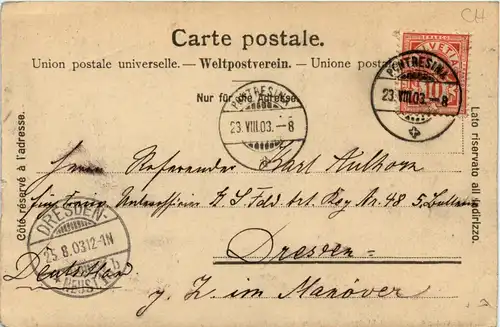 CH
Carte postale.
Union postale universelle. — Weltpostverein. — Unione posta
Nur für die Adresse
Côté réservé à l'adresse.
Lato riservato all'indirizzo.
FRANCO
HELVETIA
10
PONTRESINA
23.VIII.03.–8
PONTRESINA
23.VIII.03.–8
Herrn Referendar Karl
Unteroffizier d. R. 2 Feld Art. Reg Nr. 48 5.
Dresden
Deutschland
z. Z. im Manöver
DRESDEN-
23.8.03 12-1N
NEUST.